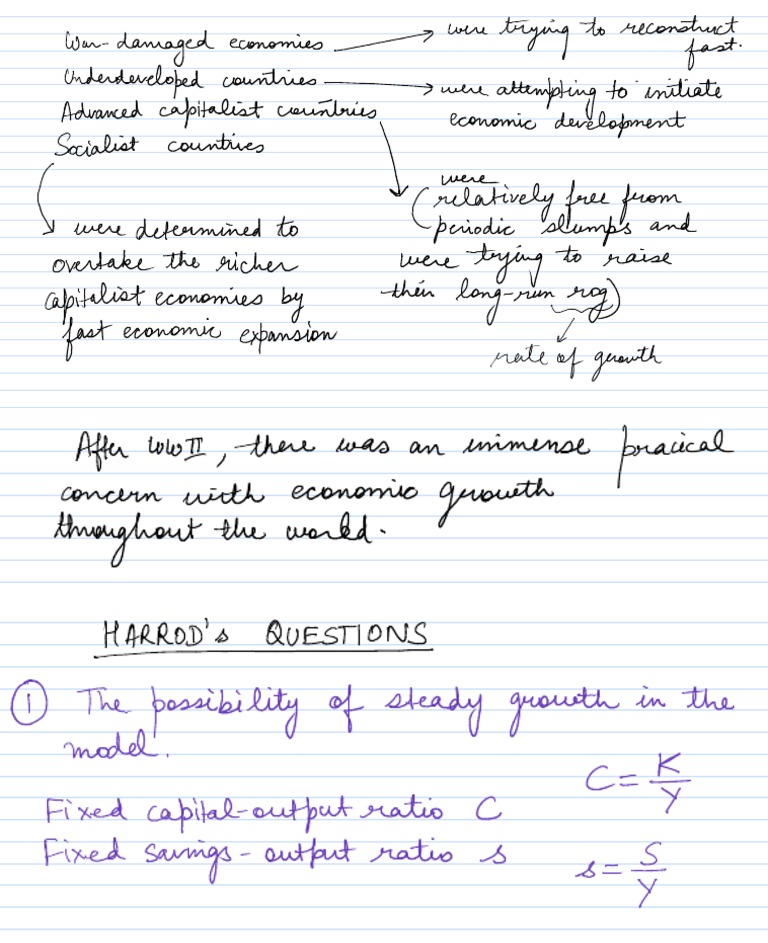 War-damaged economies
were trying to reconstruct
fast.
Underdeveloped countries
were attempting to initiate
economic development
Advanced capitalist countries
Socialist countries
were
(relatively free from
periodic slumps and
were trying to raise
their long-run rog)
rate of growth
were determined to
overtake the richer
capitalist economies by
fast economic expansion
After WWII, there was an immense pracical
concern with economic growth
throughout the world.
HARROD's QUESTIONS
① The possibility of steady growth in the
model.
Fixed capital-output ratio C
C = K/Y
Fixed savings-output ratio s
s = S/Y